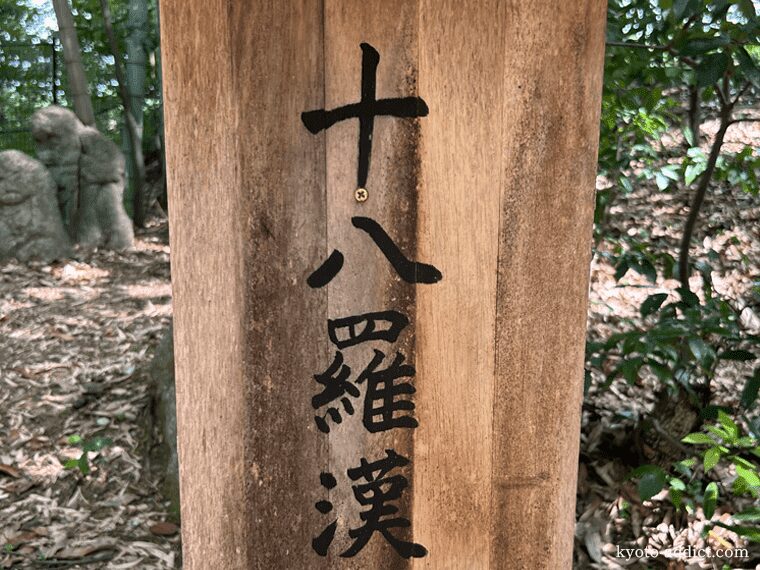 十八羅漢
kyoto-addict.com